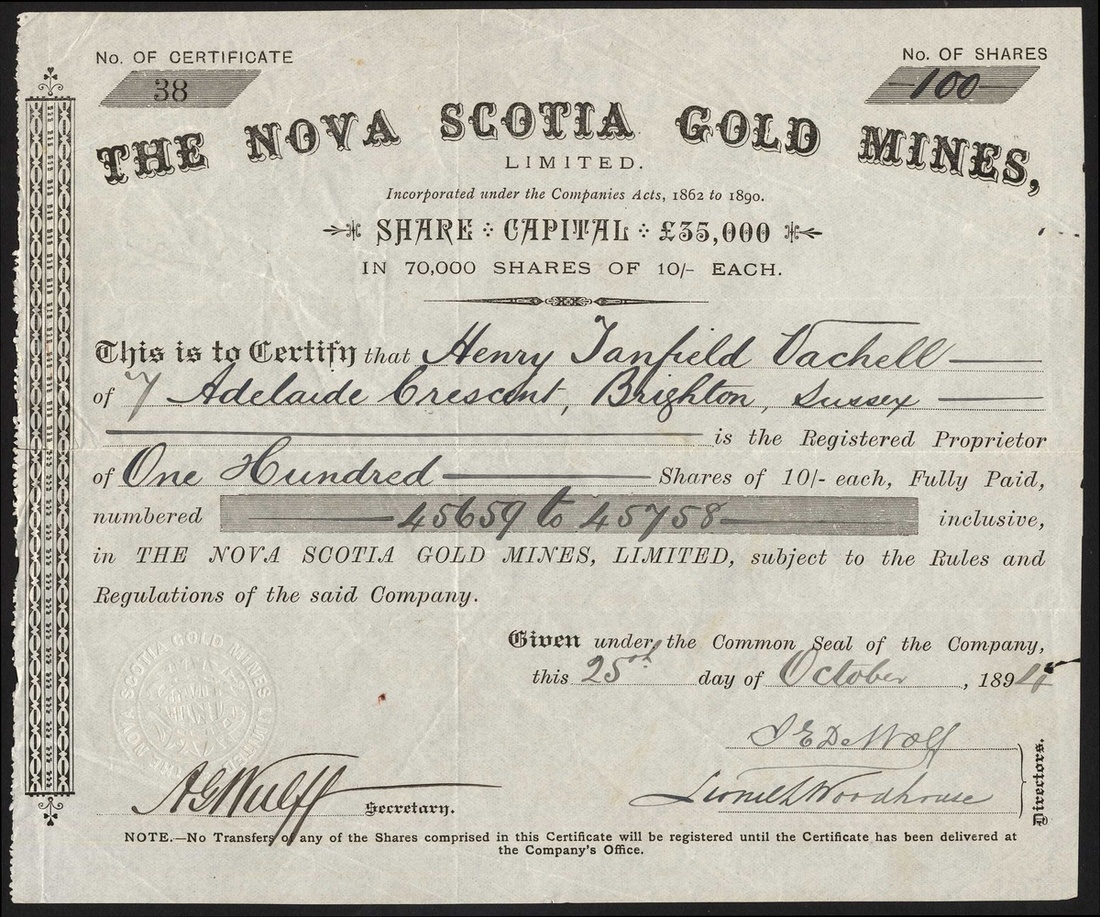 No. OF CERTIFICATE
38
No. OF SHARES
100
THE NOVA SCOTIA GOLD MINES,
LIMITED.
Incorporated under the Companies Acts, 1862 to 1890.
SHARE CAPITAL £35,000
IN 70,000 SHARES OF 10/- EACH.
This is to Certify that Henry Tanfield Vachell
of 7 Adelaide Crescent, Brighton, Sussex
is the Registered Proprietor
of One Hundred Shares of 10/- each, Fully Paid,
numbered 45659 to 45758 inclusive,
in THE NOVA SCOTIA GOLD MINES, LIMITED, subject to the Rules and
Regulations of the said Company.
Given under the Common Seal of the Company,
this 25th day of October, 1894
THE NOVA SCOTIA GOLD MINES LIMITED
J E De Wolf
Lionel Woodhouse
Directors.
A G Wulff
Secretary.
NOTE.—No Transfers of any of the Shares comprised in this Certificate will be registered until the Certificate has been delivered at
the Company's Office.